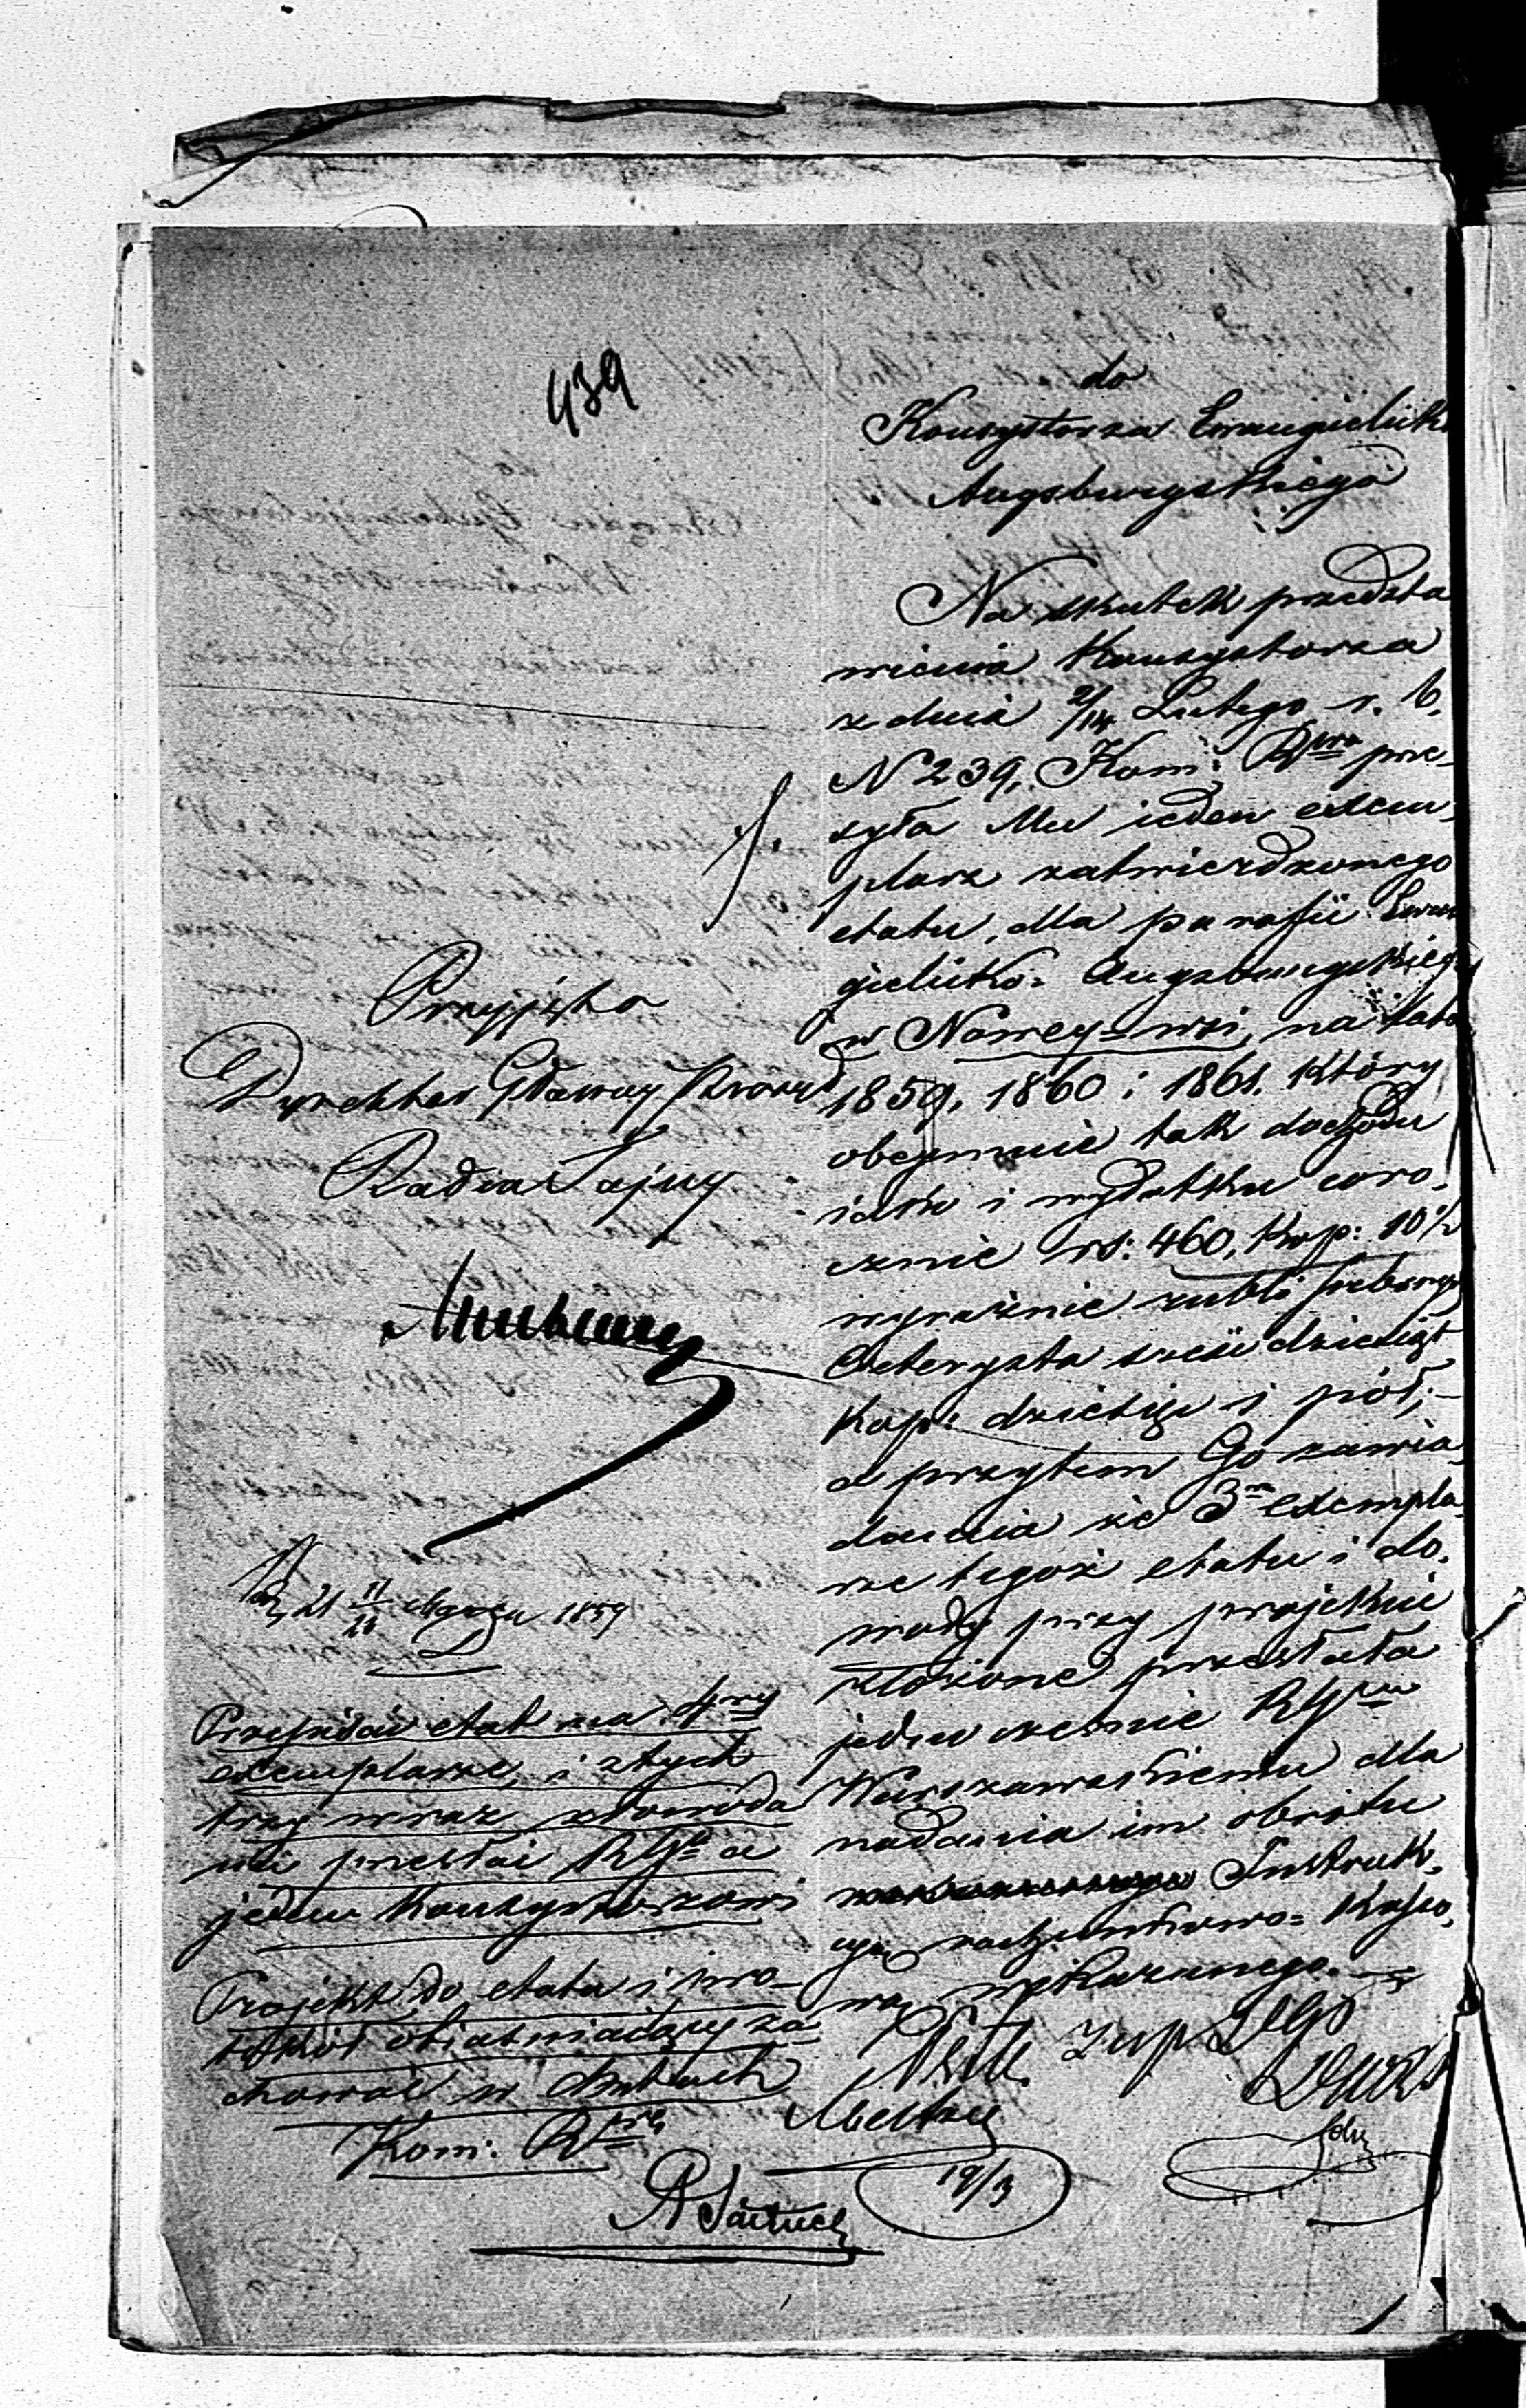 439
do
Konsystorza Ewangielick
Augsburgskiego
Na skutek przedsta
wienia Konsystorza
z dnia 2/14 Lutego r. b.
N 239, Kom: Rząwa prze-
syła Mu ieden exem-
plarz zatwierdzonego
etatu, dla parafii Ewan
gielicko= Augsburgskiego
w Nowey=wsi, na lata
1859, 1860 i 1861. który
obeymuie tak dochodu
iak i wydatku coro-
cznie rs: 460, kop: 10½
wyraźnie rubli srebrnych
czterysta sześćdziesiąt
kop: dziesięć i pół;—
a przytem Go zawia-
damia że 3m exempla-
rze tegoż etatu i do-
wody przy projekcie
złożone przesłała
jednocześnie RGmu
Warszawskiemu dla
nadania im obrotu
Instruk-
cyą rachunkowo= Kasso-
wą wskazanego.
Przyjęto
Dyrektor Główny Prezyd
Radca Tajny
21 11/23 Marca 1859
Przepisać etat na 4ry
exemplarze, i z tych
trzy wraz z dowoda
mi przesłać RGo a
jeden Konsystorzowi
Projekt do etatu i pro-
tokół obiaśniający za-
chować w aktach
Kom: Rwej
19/3